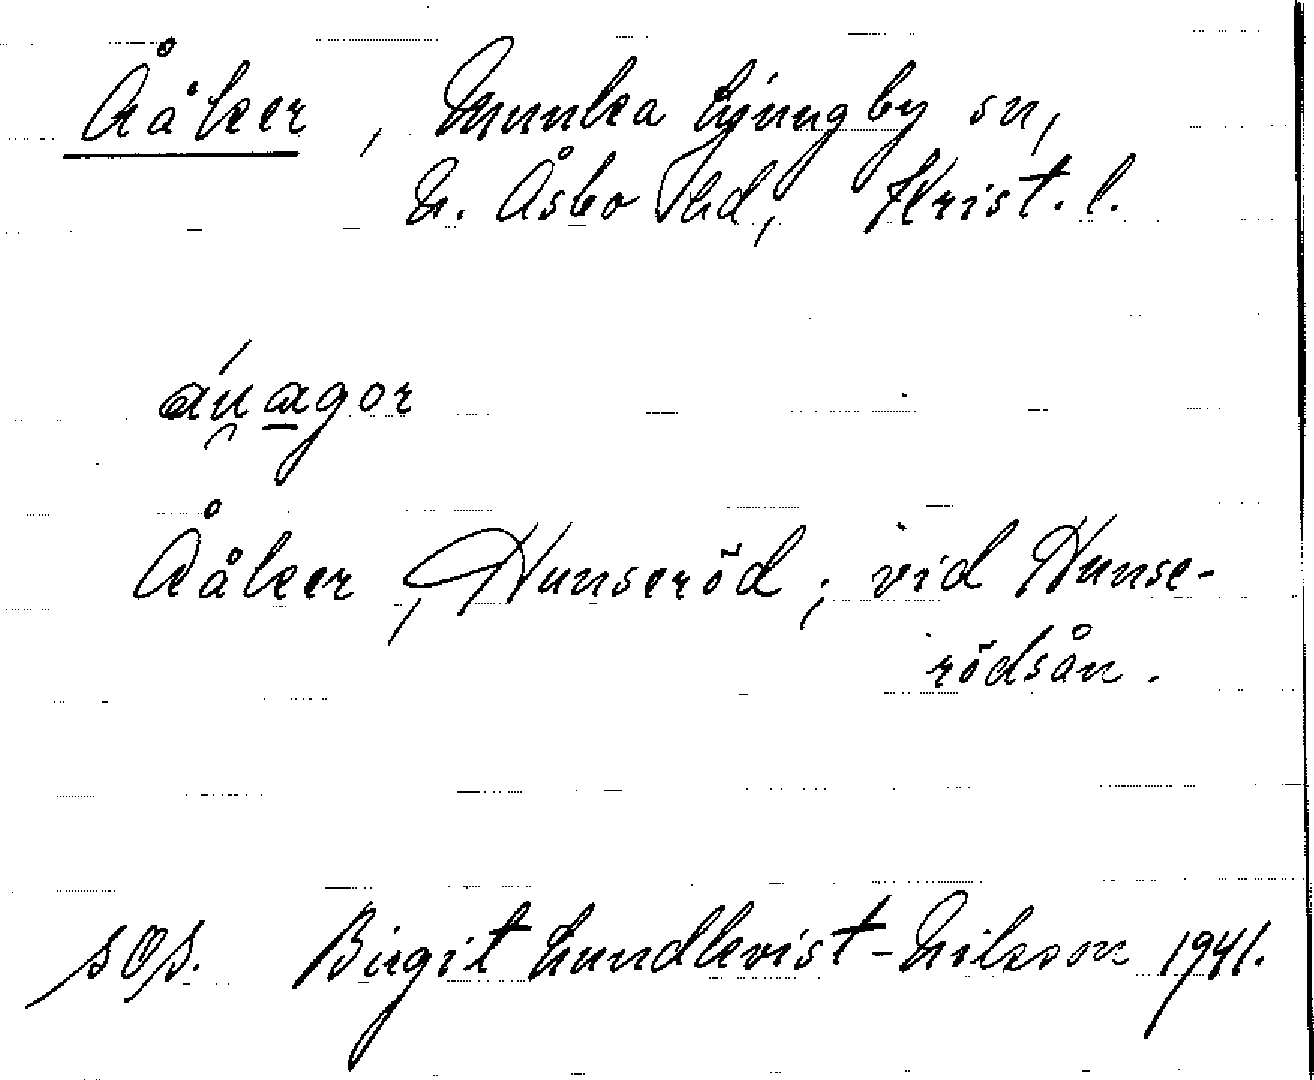 Ååker, Munka Ljungby sn,
N. Åsbo hd, Krist. l.
Ååker, Hunseröd; vid Hunse-
rödsån.
Birgit Lundkvist-Nilsson 1941.